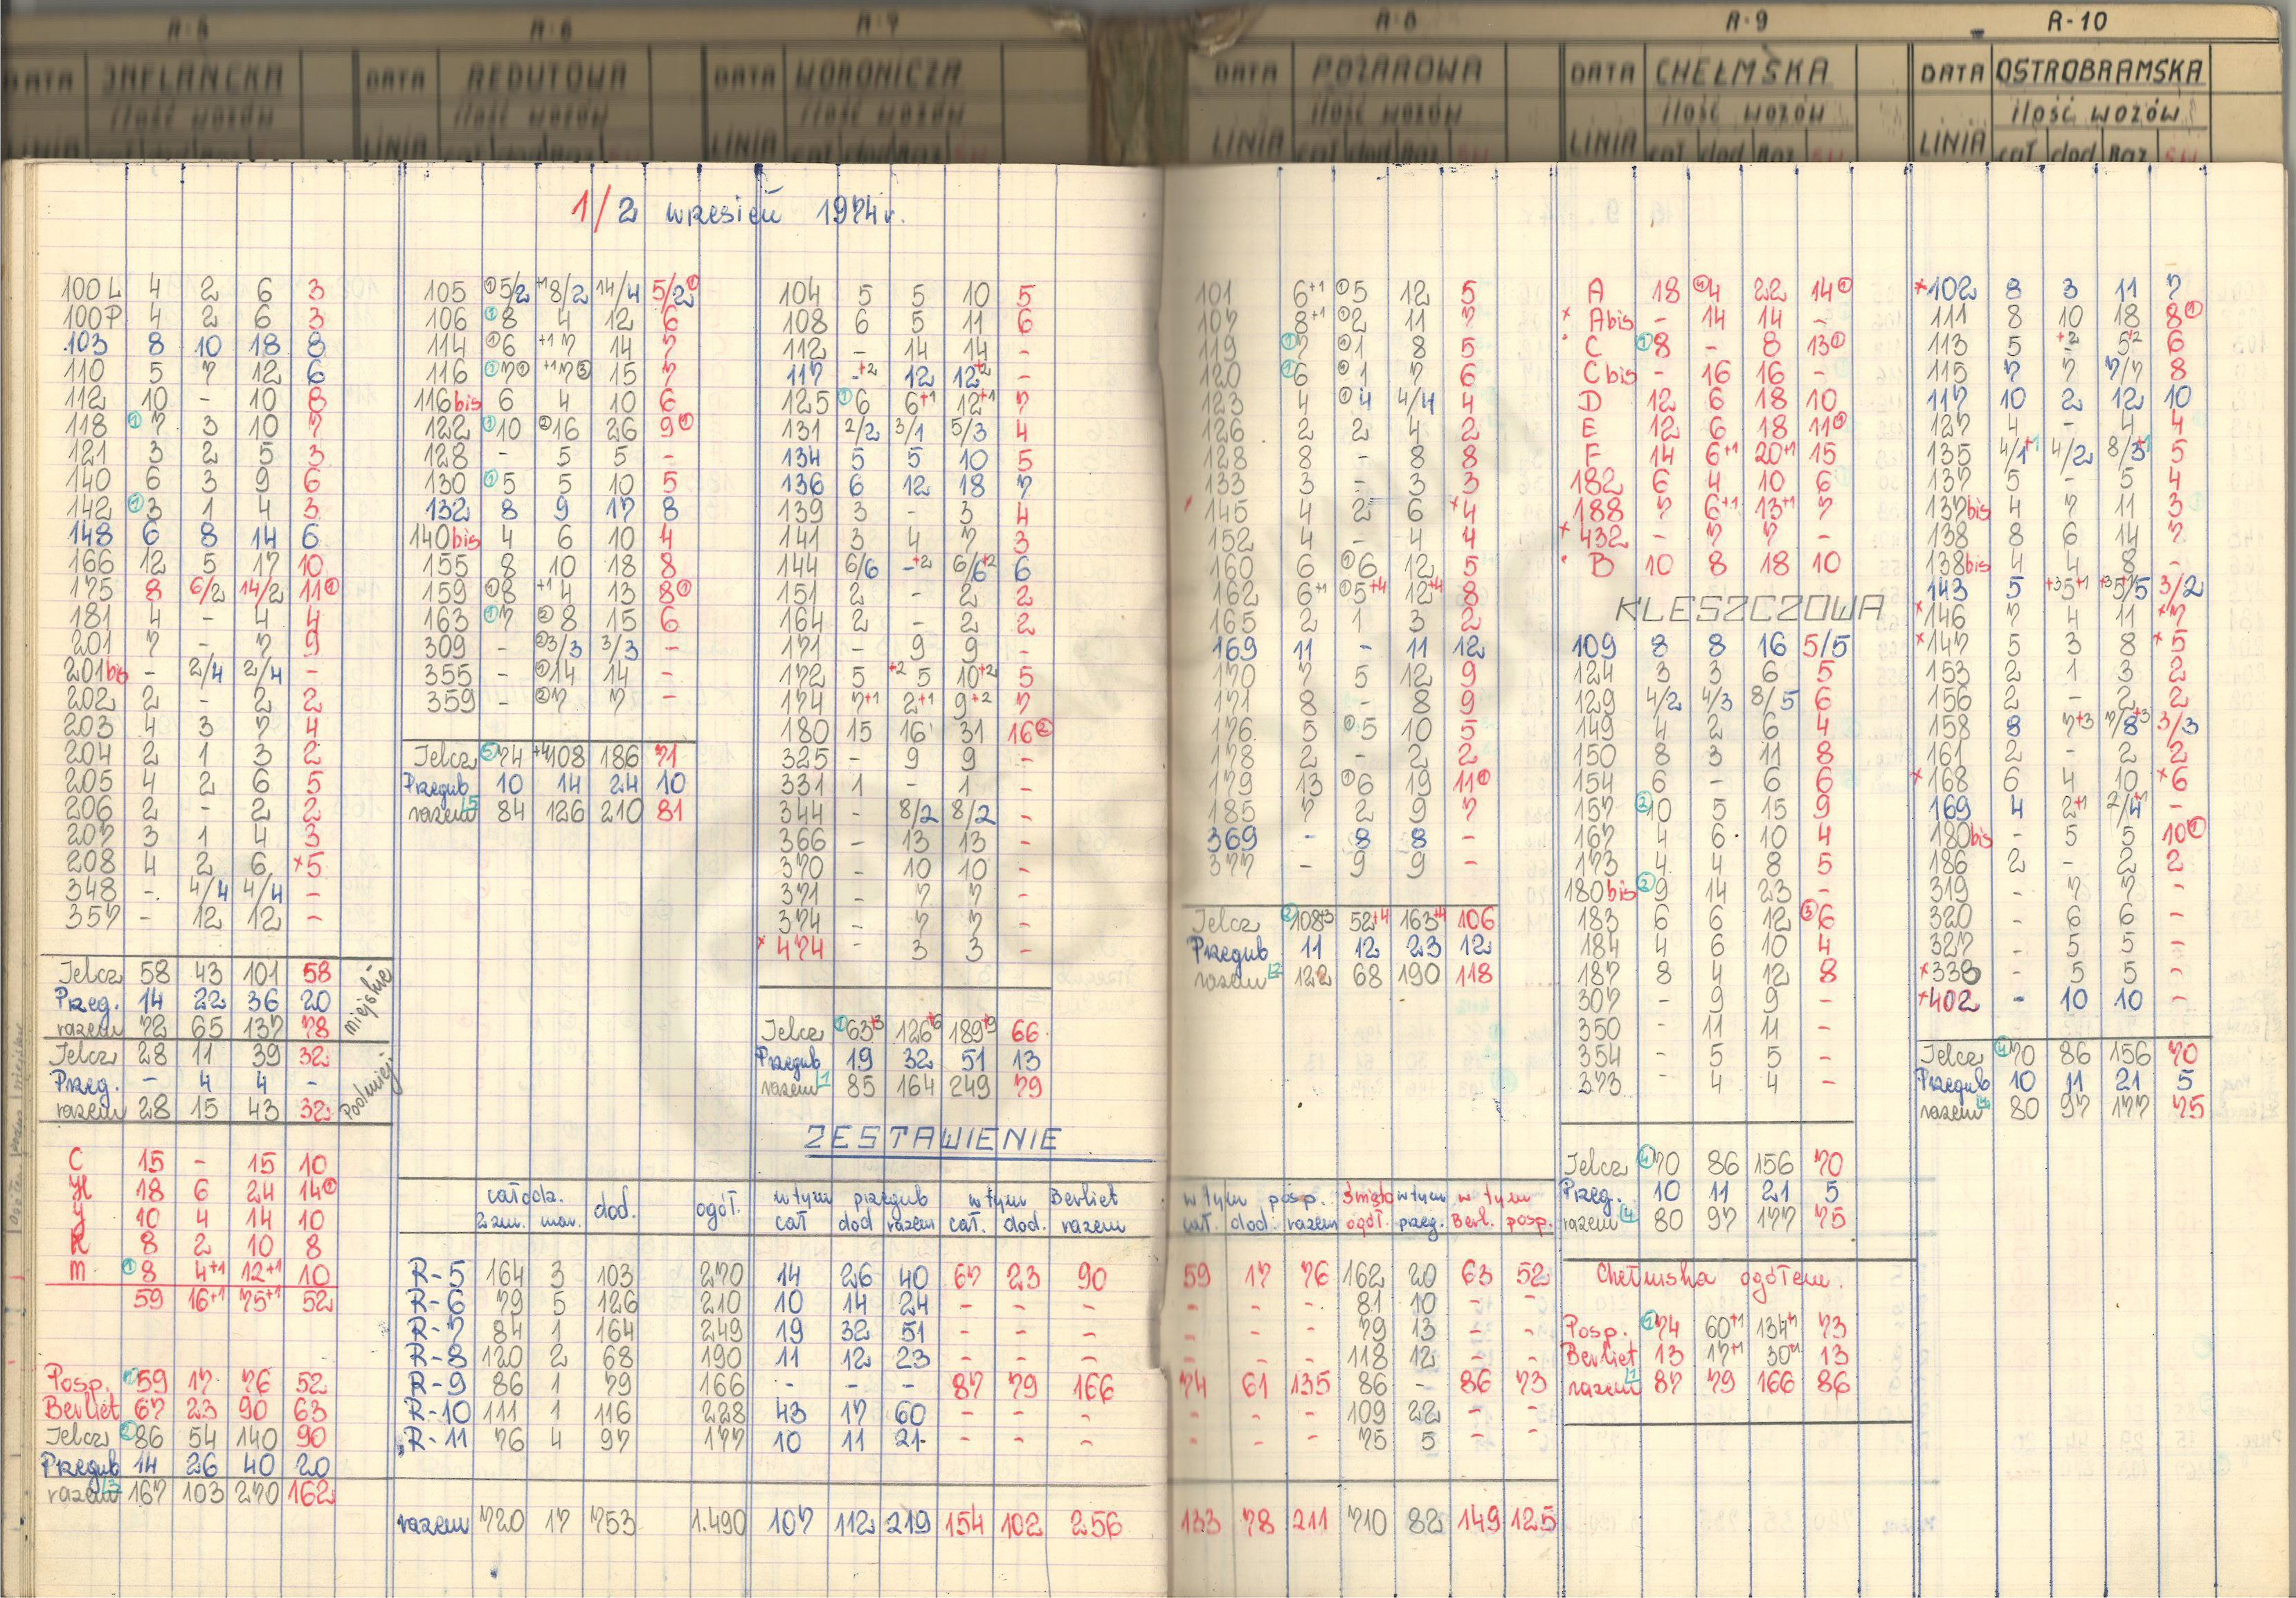 R-5 R-6 R-7 R-8 R-9 R-10
DATA INFLANCKA DATA REDUTOWA DATA WORONICZA DATA POŻAROWA DATA CHEŁMSKA DATA OSTROBRAMSKA
ilość wozów ilość wozów ilość wozów ilość wozów ilość wozów ilość wozów
LINIA LINIA LINIA LINIA cał dod Raz LINIA cał dod Raz LINIA cał dod Raz
1/2 wrzesień 1974 r.
100L 4 2 6 3
100P 4 2 6 3
103 8 10 18 8
110 5 7 12 6
112 10 - 10 8
118 ①7 3 10 7
121 3 2 5 3
140 6 3 9 6
142 ①3 1 4 3
148 6 8 14 6
166 12 5 17 10
175 8 6/2 14/2 11①
181 4 - 4 4
201 7 - 7 9
201bis - 2/4 2/4 -
202 2 - 2 2
203 4 3 7 4
204 2 1 3 2
205 4 2 6 5
206 2 - 2 2
207 3 1 4 3
208 4 2 6 ×5
348 - 4/4 4/4 -
357 - 12 12 -
Jelcz 58 43 101 58
Przeg. 14 22 36 20
razem 72 65 137 78
miejskie
Jelcz 28 11 39 32
Przeg. - 4 4 -
razem 28 15 43 32
podmiej
C 15 - 15 10
H 18 6 24 14①
J 10 4 14 10
K 8 2 10 8
M ①8 4+1 12+1 10
59 16+1 75+1 52
Posp. ①59 17 76 52
Berliet 67 23 90 63
Jelcz ②86 54 140 90
Przegub 14 26 40 20
razem 3 167 103 270 162
105 ①5/2 +18/2 14/4 5/2①
106 ①8 4 12 6
114 ①6 +17 14 7
116 ①7① +17③ 15 7
116bis 6 4 10 6
122 ①10 ②16 26 9①
128 - 5 5 -
130 ①5 5 10 5
132 8 9 17 8
140bis 4 6 10 4
155 8 10 18 8
159 ①8 +14 13 8①
163 ①7 ②8 15 6
309 - ②3/3 3/3 -
355 - ①14 14 -
359 - ②7 7 -
Jelcz ⑤74 +4108 186 71
Przegub 10 14 24 10
razem 5 84 126 210 81
104 5 5 10 5
108 6 5 11 6
112 - 14 14 -
117 -+2 12 12+2 -
125 ①6 6+1 12+1 7
131 2/2 3/1 5/3 4
134 5 5 10 5
136 6 12 18 7
139 3 - 3 4
141 3 4 7 3
144 6/6 -+2 6/6+2 6
151 2 - 2 2
164 2 - 2 2
171 - 9 9 -
172 5 +25 10+2 5
174 7+1 2+1 9+2 7
180 15 16 31 16②
325 - 9 9 -
331 1 - 1 -
344 - 8/2 8/2 -
366 - 13 13 -
370 - 10 10 -
371 - 7 7 -
374 - 7 7 -
×474 - 3 3 -
Jelcz ①63+3 126+6 189+9 66
Przegub 19 32 51 13
razem 1 85 164 249 79
101 6+1 ①5 12 5
107 8+1 ①2 11 7
119 ①7 ①1 8 5
120 ①6 ①1 7 6
123 4 ①4 4/4 4
126 2 2 4 2
128 8 - 8 8
133 3 - 3 3
145 4 2 6 ×4
152 4 - 4 4
160 6 ①6 12 5
162 6+1 ①5+4 12+4 8
165 2 1 3 2
169 11 - 11 12
170 7 5 12 9
171 8 - 8 9
176 5 ①5 10 5
178 2 - 2 2
179 13 ①6 19 11①
185 7 2 9 7
369 - 8 8 -
377 - 9 9 -
Jelcz ②108+3 52+4 163+4 106
Przegub 11 12 23 12
razem 2 122 68 190 118
A 18 ④4 22 14①
×Abis - 14 14 -
C ①8 - 8 13①
Cbis - 16 16 -
D 12 6 18 10
E 12 6 18 11①
F 14 6+1 20+1 15
182 6 4 10 6
188 7 6+1 13+1 7
×432 - 7 7 -
B 10 8 18 10
KLESZCZOWA
109 8 8 16 5/5
124 3 3 6 5
129 4/2 4/3 8/5 6
149 4 2 6 4
150 8 3 11 8
154 6 - 6 6
157 ②10 5 15 9
167 4 6 10 4
173 4 4 8 5
180bis ②9 14 23 -
183 6 6 12 ③6
184 4 6 10 4
187 8 4 12 8
307 - 9 9 -
350 - 11 11 -
354 - 5 5 -
373 - 4 4 -
Jelcz ④70 86 156 70
Przeg. 10 11 21 5
razem 4 80 97 177 75
Chełmska ogółem.
Posp. ①74 60+1 134+1 73
Berliet 13 17+1 30+1 13
razem 1 87 79 166 86
×102 8 3 11 7
111 8 10 18 8①
113 5 +2- 5+2 6
115 7 7 7/7 8
117 10 2 12 10
127 4 - 4 4
135 4/1+1 4/2 8/3+1 5
137 5 - 5 4
137bis 4 7 11 3
138 8 6 14 7
138bis 4 4 8 -
143 5 +35+1 +35/5 3/2
×146 7 4 11 ×7
×147 5 3 8 ×5
153 2 1 3 2
156 2 - 2 2
158 8 7+3 7/8+3 3/3
161 2 - 2 2
×168 6 4 10 ×6
169 4 2+1 2/4+1 -
180bis - 5 5 10①
186 2 - 2 2
319 - 7 7 -
320 - 6 6 -
327 - 5 5 -
×338 - 5 5 -
×402 - 10 10 -
Jelcz ④70 86 156 70
Przegub 10 11 21 5
razem 4 80 97 177 75
ZESTAWIENIE
całodz. dod. ogół. w tym przegub w tym Berliet w tym posp. święto w tym w tym
2 zm. cał dod razem cał. dod. razem cał. dod. razem ogół. przeg. Berl. posp.
R-5 164 3 103 270 14 26 40 67 23 90 59 17 76 162 20 63 52
R-6 79 5 126 210 10 14 24 - - - - - - 81 10 - -
R-7 84 1 164 249 19 32 51 - - - - - - 79 13 - -
R-8 120 2 68 190 11 12 23 - - - - - - 118 12 - -
R-9 86 1 79 166 - - - 87 79 166 74 61 135 86 - 86 73
R-10 111 1 116 228 43 17 60 - - - - - - 109 22 - -
R-11 76 4 97 177 10 11 21 - - - - - - 75 5 - -
razem 720 17 753 1.490 107 112 219 154 102 256 133 78 211 710 82 149 125